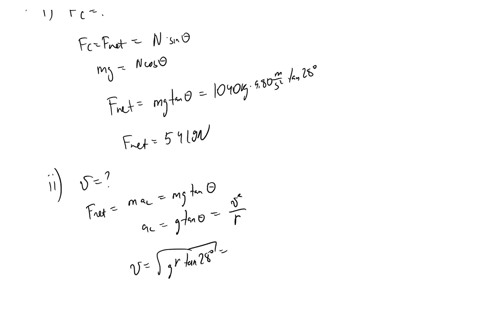 i) Fc = ?
Fc = Fnet = N·sinθ
mg = Ncosθ
Fnet = mgtanθ = 1040kg·9.80 m/s² tan28°
Fnet = 5419N
ii) v = ?
Fnet = mac = mg tanθ
ac = gtanθ = v²/r
v = √(gr tan28°) =